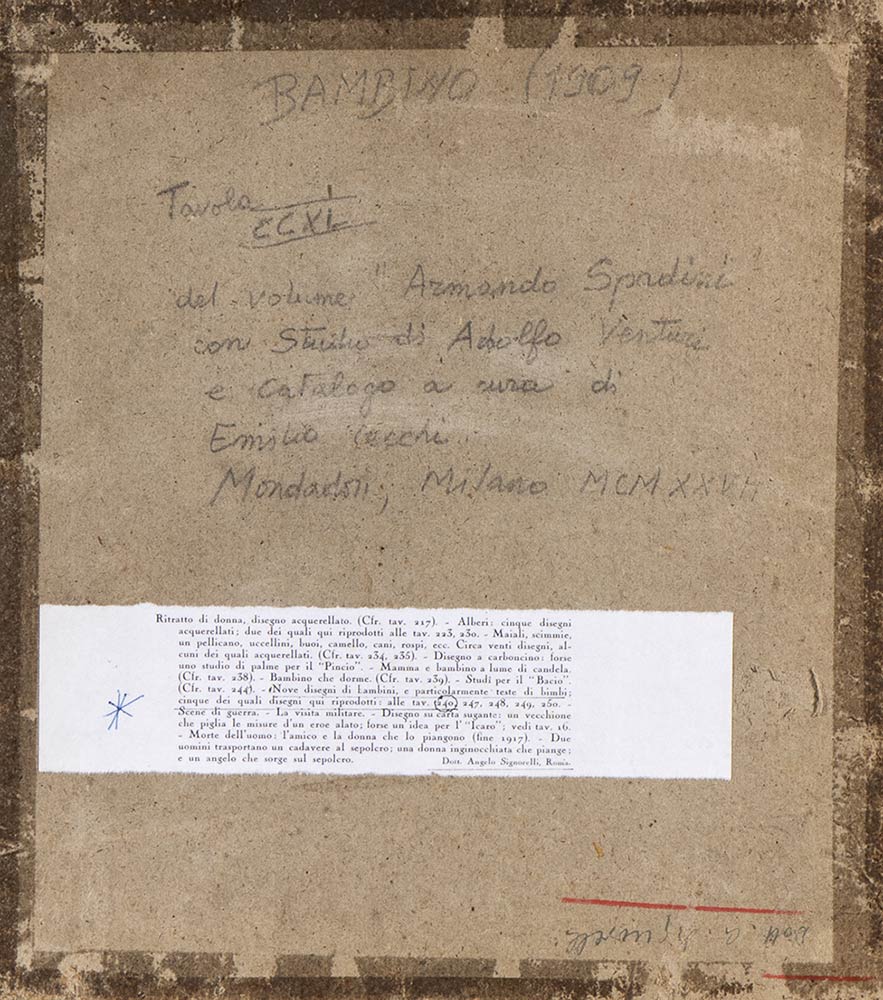 BAMBINO (1909)
Tavola CCXL
del volume "Armando Spadini
con Studio di Adolfo Venturi
e catalogo a cura di
Emilio Cecchi
Mondadori, Milano MCMXXVII
Ritratto di donna, disegno acquerellato. (Cfr. tav. 217). - Alberi: cinque disegni
acquerellati; due dei quali qui riprodotti alle tav. 223, 230. - Maiali, scimmie,
un pellicano, uccellini, buoi, camello, cani, rospi, ecc. Circa venti disegni, al-
cuni dei quali acquerellati. (Cfr. tav. 234, 235). - Disegno a carboncino: forse
uno studio di palme per il "Pincio". - Mamma e bambino a lume di candela.
(Cfr. tav. 238). - Bambino che dorme. (Cfr. tav. 239). - Studî per il "Bacio".
(Cfr. tav. 244). - Nove disegni di bambini, e particolarmente teste di bimbi;
cinque dei quali disegni qui riprodotti: alle tav. 240, 247, 248, 249, 250. -
Scene di guerra. - La visita militare. - Disegno su carta sugante: un vecchione
che piglia le misure d'un eroe alato; forse un'idea per l'"Icaro"; vedi tav. 16.
- Morte dell'uomo: l'amico e la donna che lo piangono (fine 1917). - Due
uomini trasportano un cadavere al sepolcro; una donna inginocchiata che piange;
e un angelo che sorge sul sepolcro.
Dott. Angelo Signorelli, Roma.
Dott. A. Signorelli